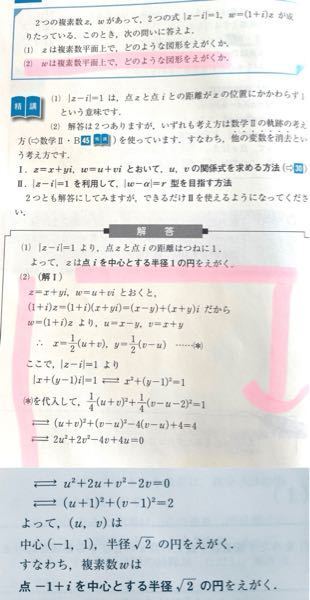 2つの複素数z, wがあって, 2つの式 |z−i|=1, w=(1+i)z が成
りたっている. このとき, 次の問いに答えよ.
(1) zは複素数平面上で, どのような図形をえがくか.
(2) wは複素数平面上で, どのような図形をえがくか.
精講
(1) |z−i|=1 は, 点zと点iとの距離がzの位置にかかわらず1
という意味です.
(2) 解答は2つありますが, いずれも考え方は数学Ⅱの軌跡の考え
方(⇨数学Ⅱ・B45)を使っています. すなわち, 他の変数を消去とい
う考え方です.
Ⅰ. z=x+yi, w=u+vi とおいて, u, vの関係式を求める方法(⇨30)
Ⅱ. |z−i|=1 を利用して, |w−α|=r 型を目指す方法
2つとも解答にしてみますが, できるだけⅡを使えるようになってくださ
い.
解答
(1) |z−i|=1 より, 点zと点iの距離はつねに1.
よって, zは点iを中心とする半径1の円をえがく.
(2) (解Ⅰ)
z=x+yi, w=u+vi とおくと,
(1+i)z=(1+i)(x+yi)=(x−y)+(x+y)i だから
w=(1+i)z より, u=x−y, v=x+y
∴ x=1/2(u+v), y=1/2(v−u) ……(*)
ここで, |z−i|=1 より
|x+(y−1)i|=1 ⟺ x²+(y−1)²=1
(*)を代入して, 1/4(u+v)²+1/4(v−u−2)²=1
⟺ (u+v)²+(v−u)²−4(v−u)+4=4
⟺ 2u²+2v²−4v+4u=0
⟺ u²+2u+v²−2v=0
⟺ (u+1)²+(v−1)²=2
よって, (u, v)は
中心(−1, 1), 半径√2 の円をえがく.
すなわち, 複素数wは
点 −1+i を中心とする半径√2 の円をえがく.